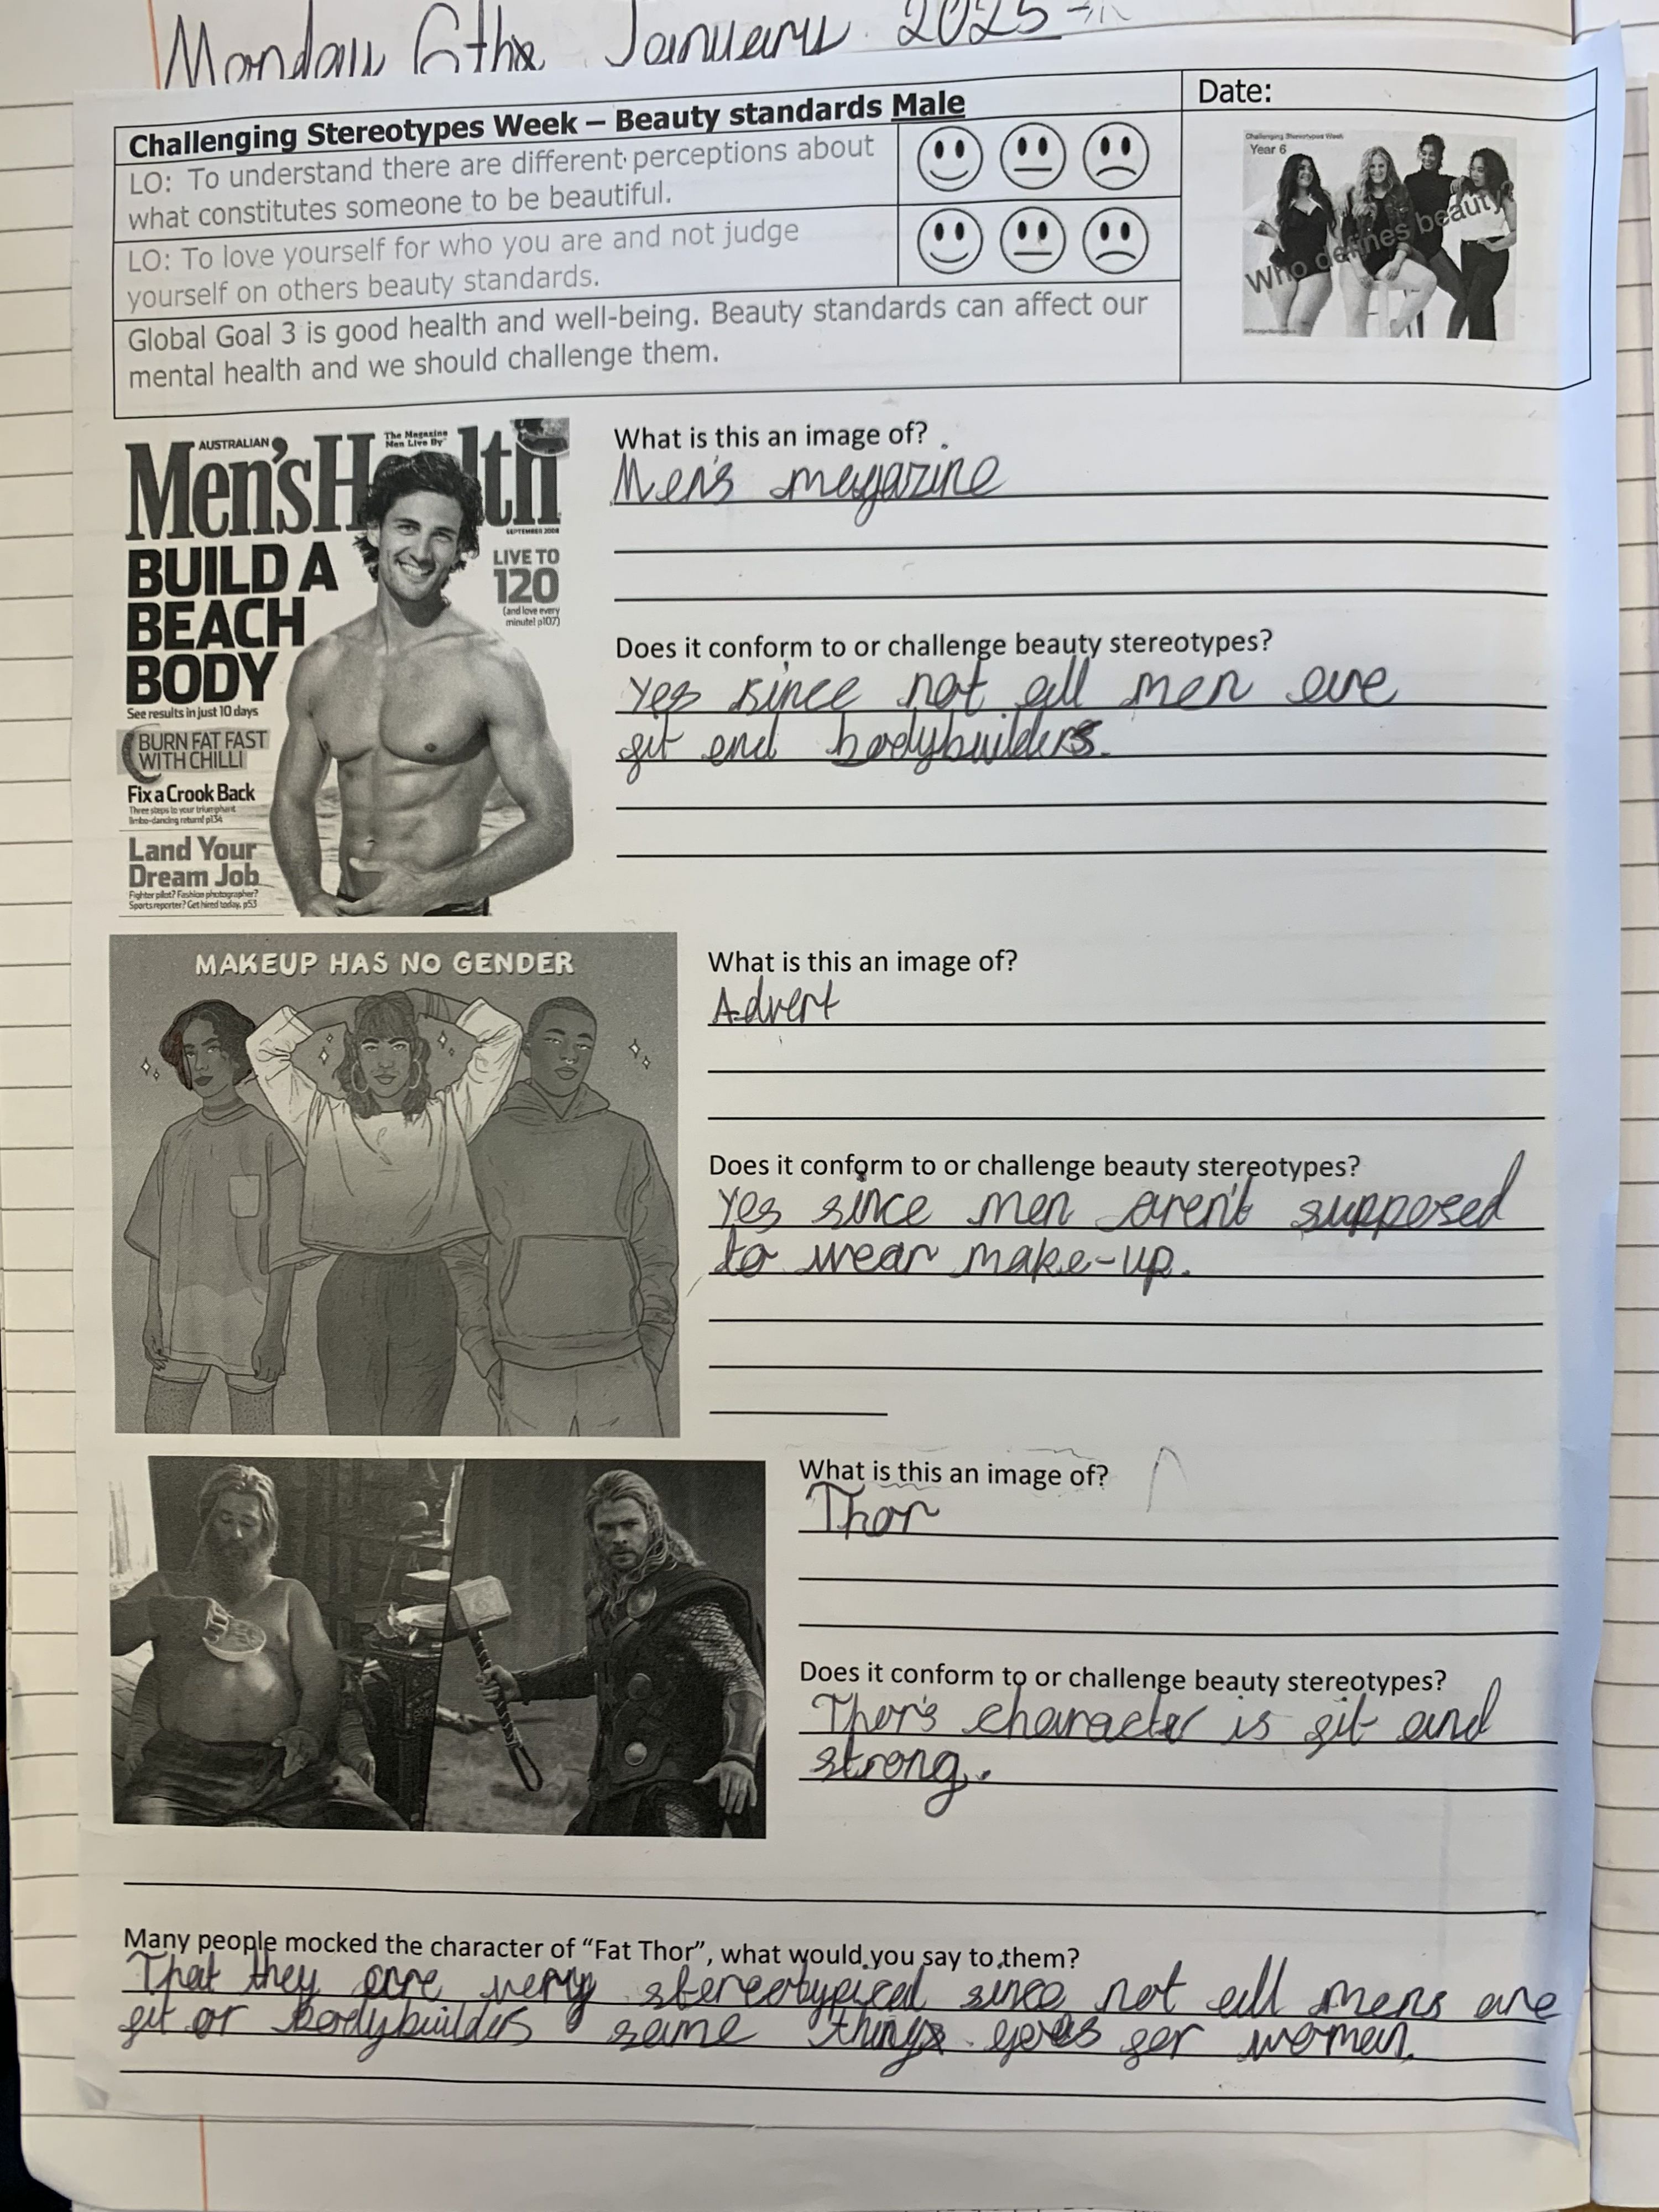 Monday 6th January 2025
Challenging Stereotypes Week – Beauty standards Male
Date:
LO: To understand there are different perceptions about
what constitutes someone to be beautiful.
LO: To love yourself for who you are and not judge
yourself on others beauty standards.
Global Goal 3 is good health and well-being. Beauty standards can affect our
mental health and we should challenge them.
Challenging Stereotypes Week
Year 6
Who defines beauty
AUSTRALIAN
The Magazine
Men Live By
Men'sHealth
SEPTEMBER 2008
BUILD A
BEACH
BODY
See results in just 10 days
LIVE TO
120
(and love every
minute! p107)
BURN FAT FAST
WITH CHILLI
Fix a Crook Back
Three steps to your triumphant
limbo-dancing return! p134
Land Your
Dream Job
Fighter pilot? Fashion photographer?
Sports reporter? Get hired today, p53
What is this an image of?
Men's megazine
Does it conform to or challenge beauty stereotypes?
Yes since not all men are
fit and bodybuilders.
MAKEUP HAS NO GENDER
What is this an image of?
Advert
Does it conform to or challenge beauty stereotypes?
Yes since men aren't supposed
to wear make-up.
What is this an image of?
Thor
Does it conform to or challenge beauty stereotypes?
Thor's character is fit and
strong.
Many people mocked the character of "Fat Thor", what would you say to them?
That they are very stereotypical since not all mens are
fit or bodybuilders same things goes for women.